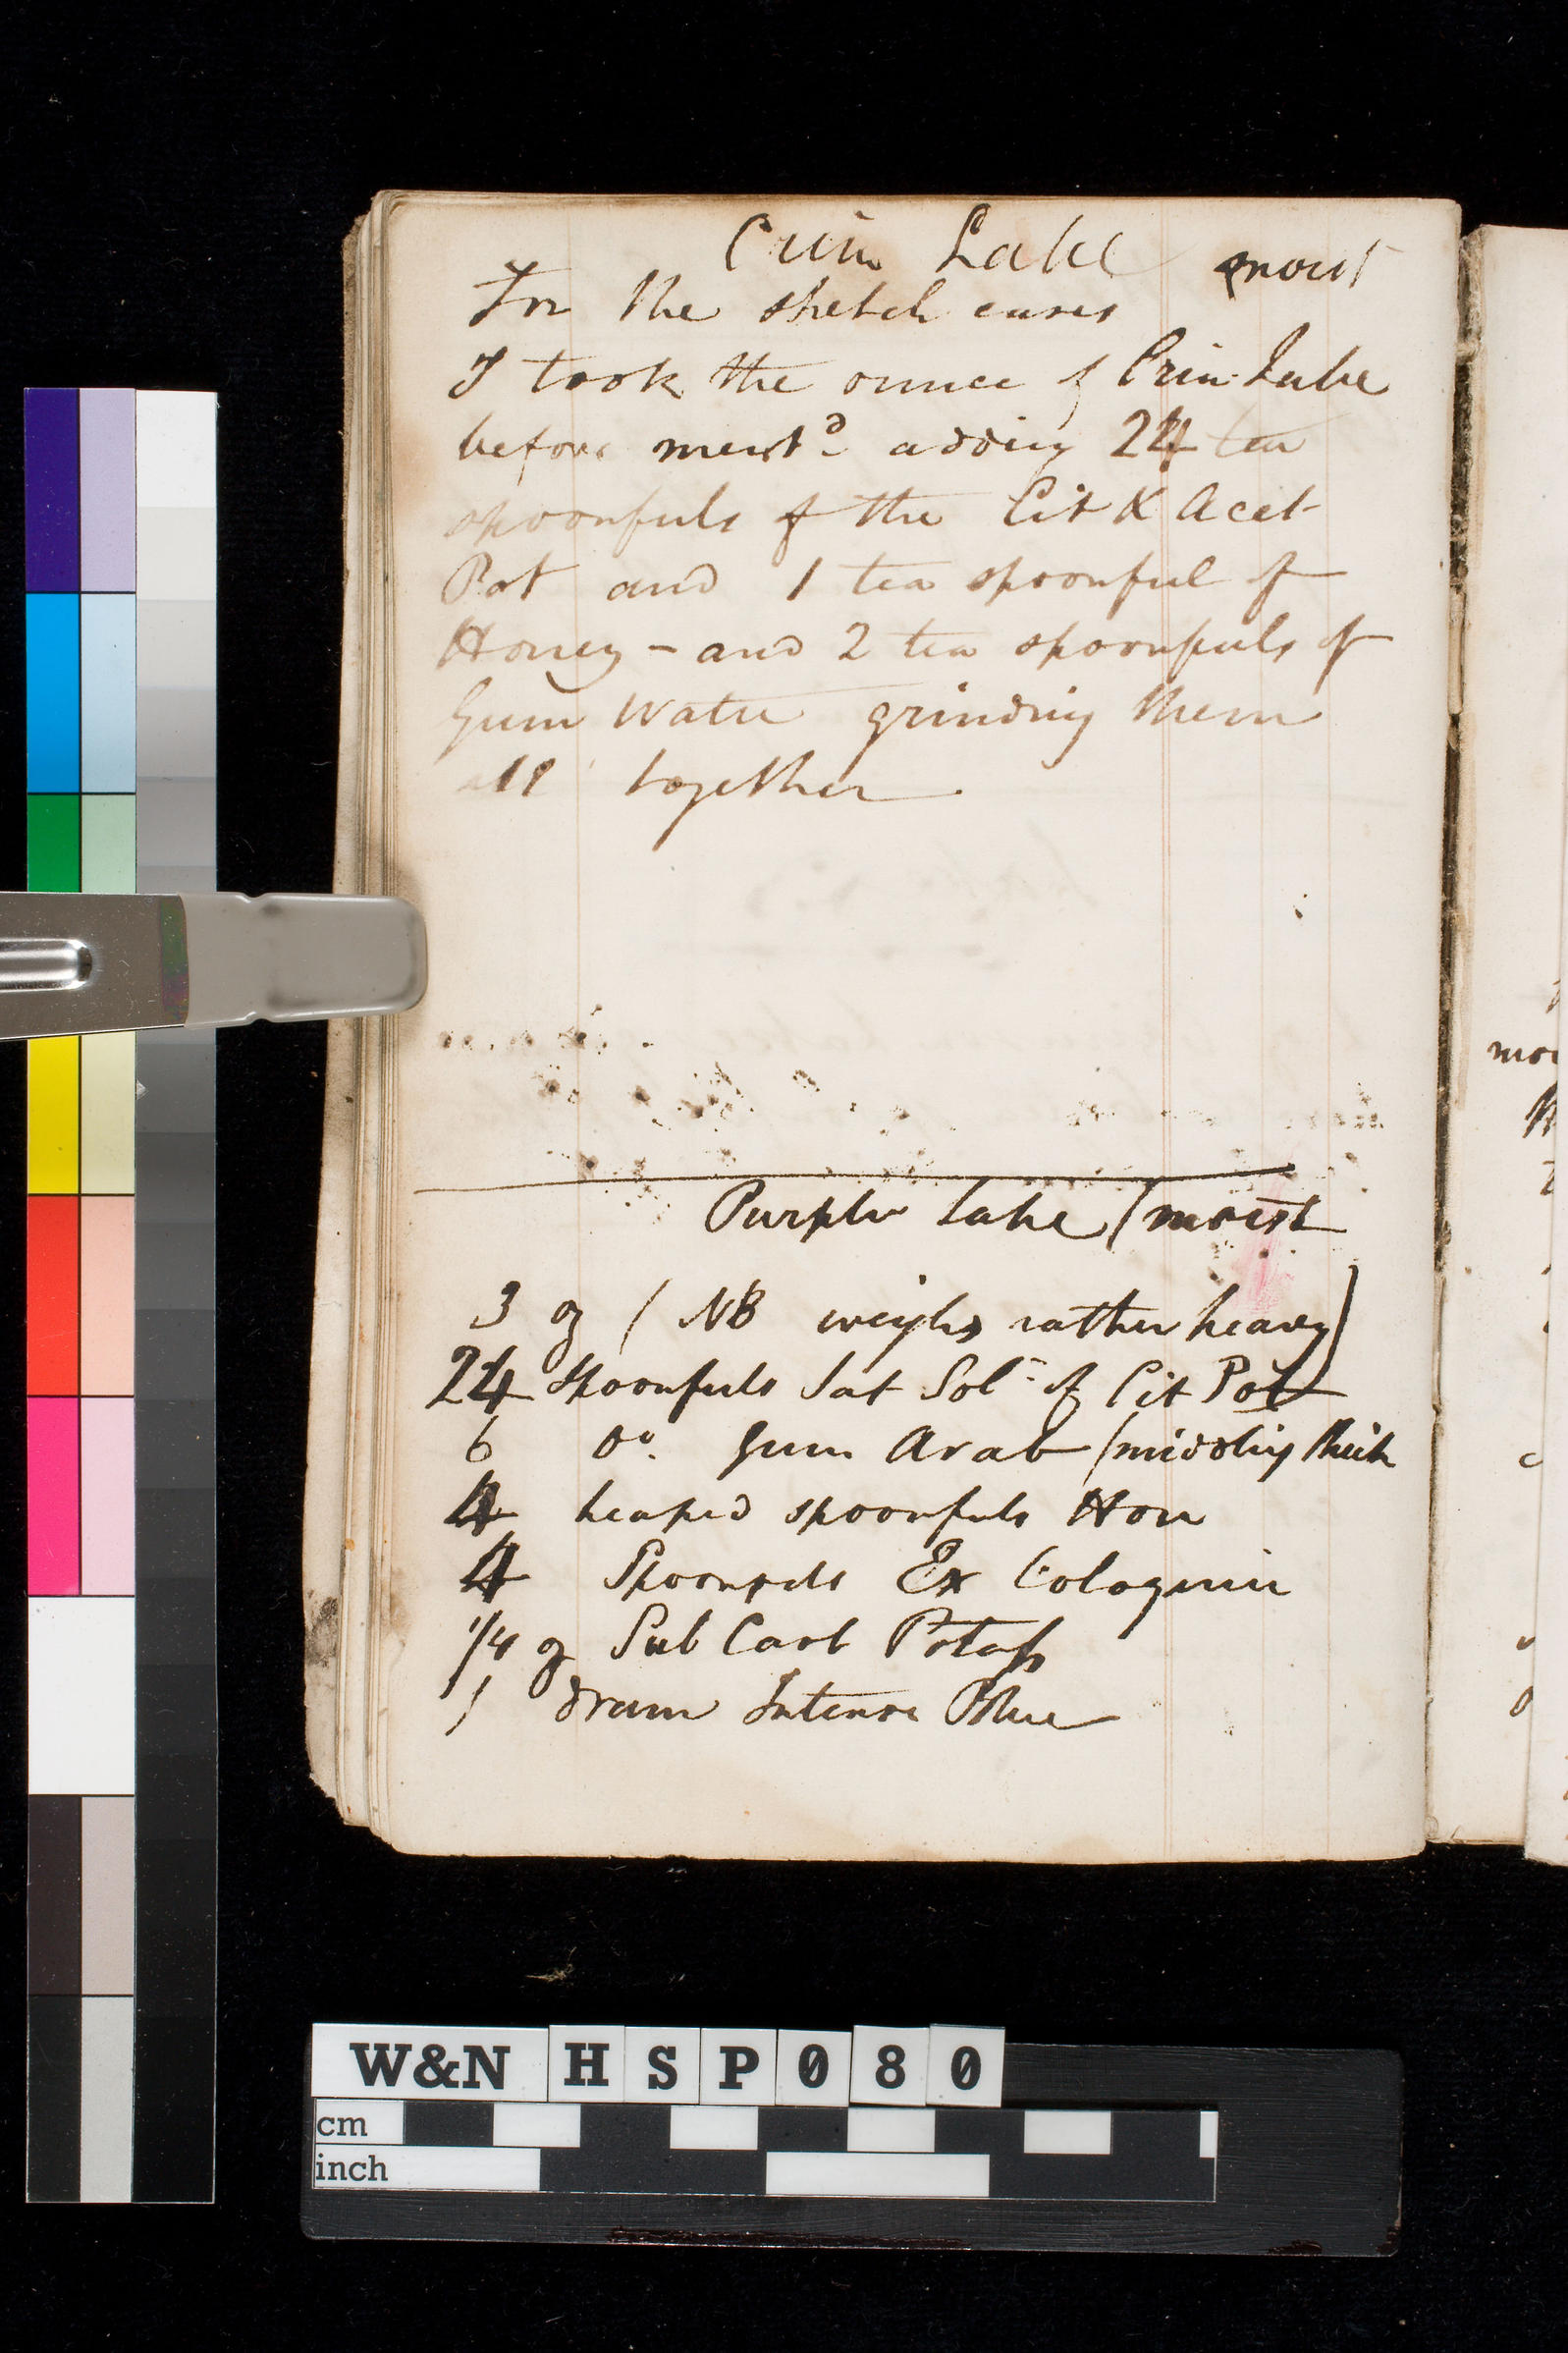 Crim Lake moist
For the sketch cases
I took the ounce of Crim. Lake
before ment.d adding 24 tea
spoonfuls of the Cit & Acet
Pot and 1 tea spoonful of
Honey - and 2 tea spoonfuls of
Gum Water grinding them
all together.
Purple Lake (moist
3 oz (NB weighs rather heavy)
24 spoonfuls Sat Sol.n of Cit Pot
6 Do. Gum Arab (middling thick
4 heaped spoonfuls Hon
4 Spoonfuls Ex Coloquin
1/4 oz Sub Carb Potass
1 dram Intense Blue
W&N HSP080
cm
inch
mo